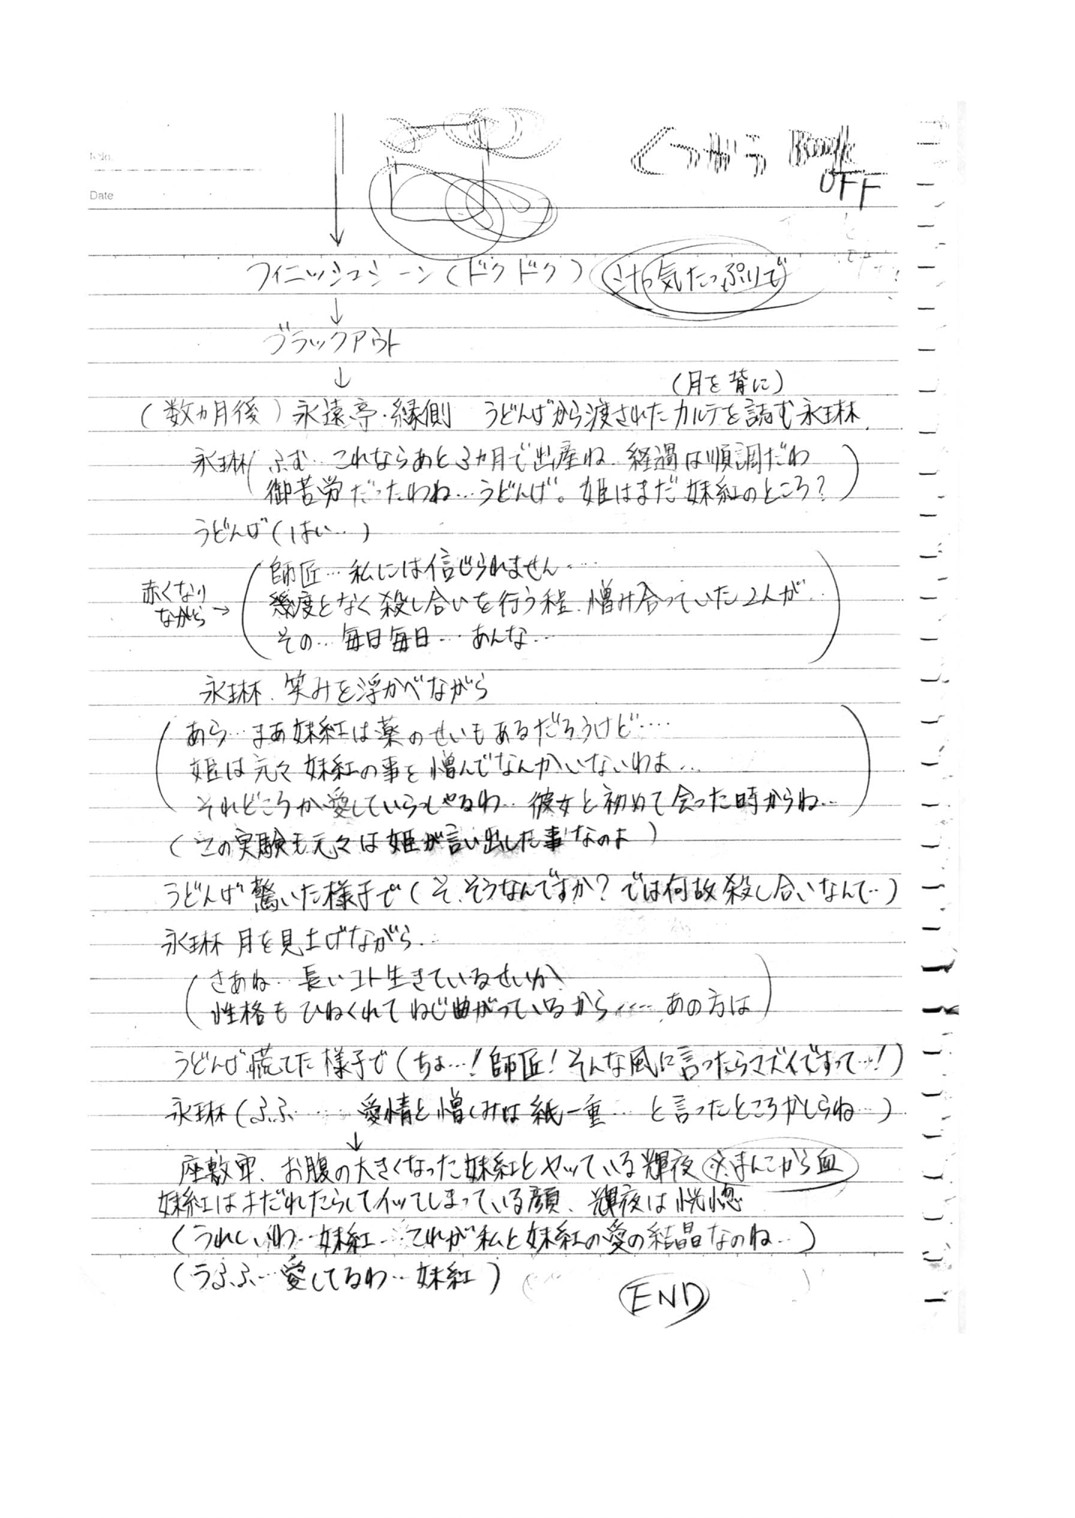 No.
Date
くつがう Book
OFF
フィニッシュシーン(ドクドク)(汁気たっぷりで)
↓
ブラックアウト
↓
(月を背に)
(数ヵ月後)永遠亭・縁側 うどんげから渡されたカルテを読む永琳
永琳(ふむ…これならあと3ヵ月で出産ね 経過は順調だわ
御苦労だったわね…うどんげ。姫はまだ妹紅のところ?)
うどんげ(はい…)
赤くなり
ながら→
(師匠…私には信じられません…
幾度となく殺し合いを行う程、憎み合っていた2人が…
その…毎日毎日…あんな…)
永琳、笑みを浮かべながら
(あら…まあ妹紅は薬のせいもあるだろうけど…
姫は元々妹紅の事を憎んでなんかいないわよ…
それどころか愛していらっしゃるわ…彼女と初めて会った時からね…)
(この実験も元々は姫が言い出した事なのよ)
うどんげ驚いた様子で(そ、そうなんですか?では何故殺し合いなんて…)
永琳 月を見上げながら…
(さあね…長いコト生きているせいか
性格もひねくれてねじ曲がっているから……あの方は)
うどんげ慌てた様子で(ちょ…!師匠!そんな風に言ったらマズイですって…!)
永琳(ふふ……愛情と憎しみは紙一重…と言ったところかしらね…)
↓
座敷牢、お腹の大きくなった妹紅とヤッている輝夜 ※まんこから血
妹紅はまだれたらしてイッてしまっている顔、輝夜は恍惚
(うれしいわ…妹紅…これが私と妹紅の愛の結晶なのね…)
(うふふ…愛してるわ…妹紅)
END